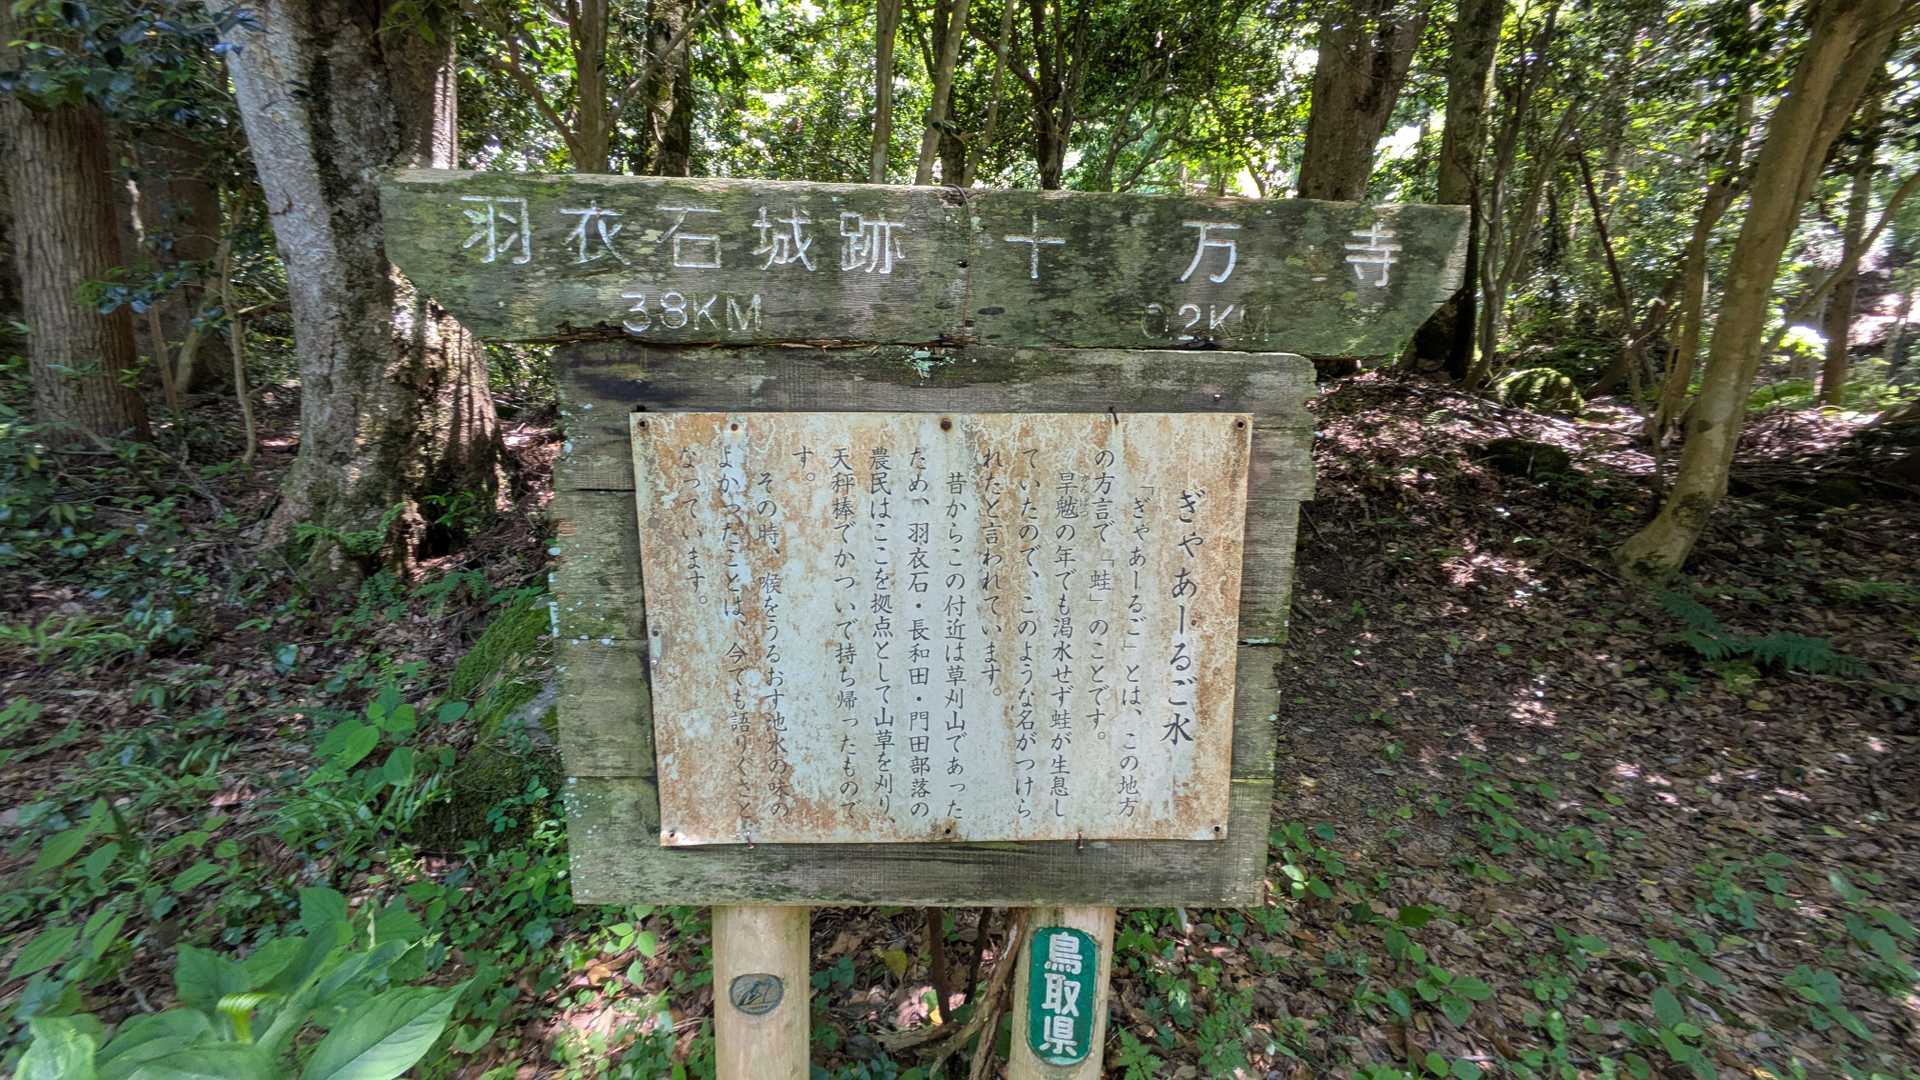 羽衣石城跡
3.8KM
十万寺
0.2KM
ぎゃあーるご水
「ぎゃあーるご」とは、この地方
の方言で「蛙」のことです。
旱魃の年でも渇水せず蛙が生息し
かんばつ
ていたので、このような名がつけら
れたと言われています。
昔からこの付近は草刈山であった
ため、羽衣石・長和田・門田部落の
農民はここを拠点として山草を刈り、
天秤棒でかついで持ち帰ったもので
す。
その時、喉をうるおす池水の味の
よかったことは、今でも語りぐさと
なっています。
鳥取県